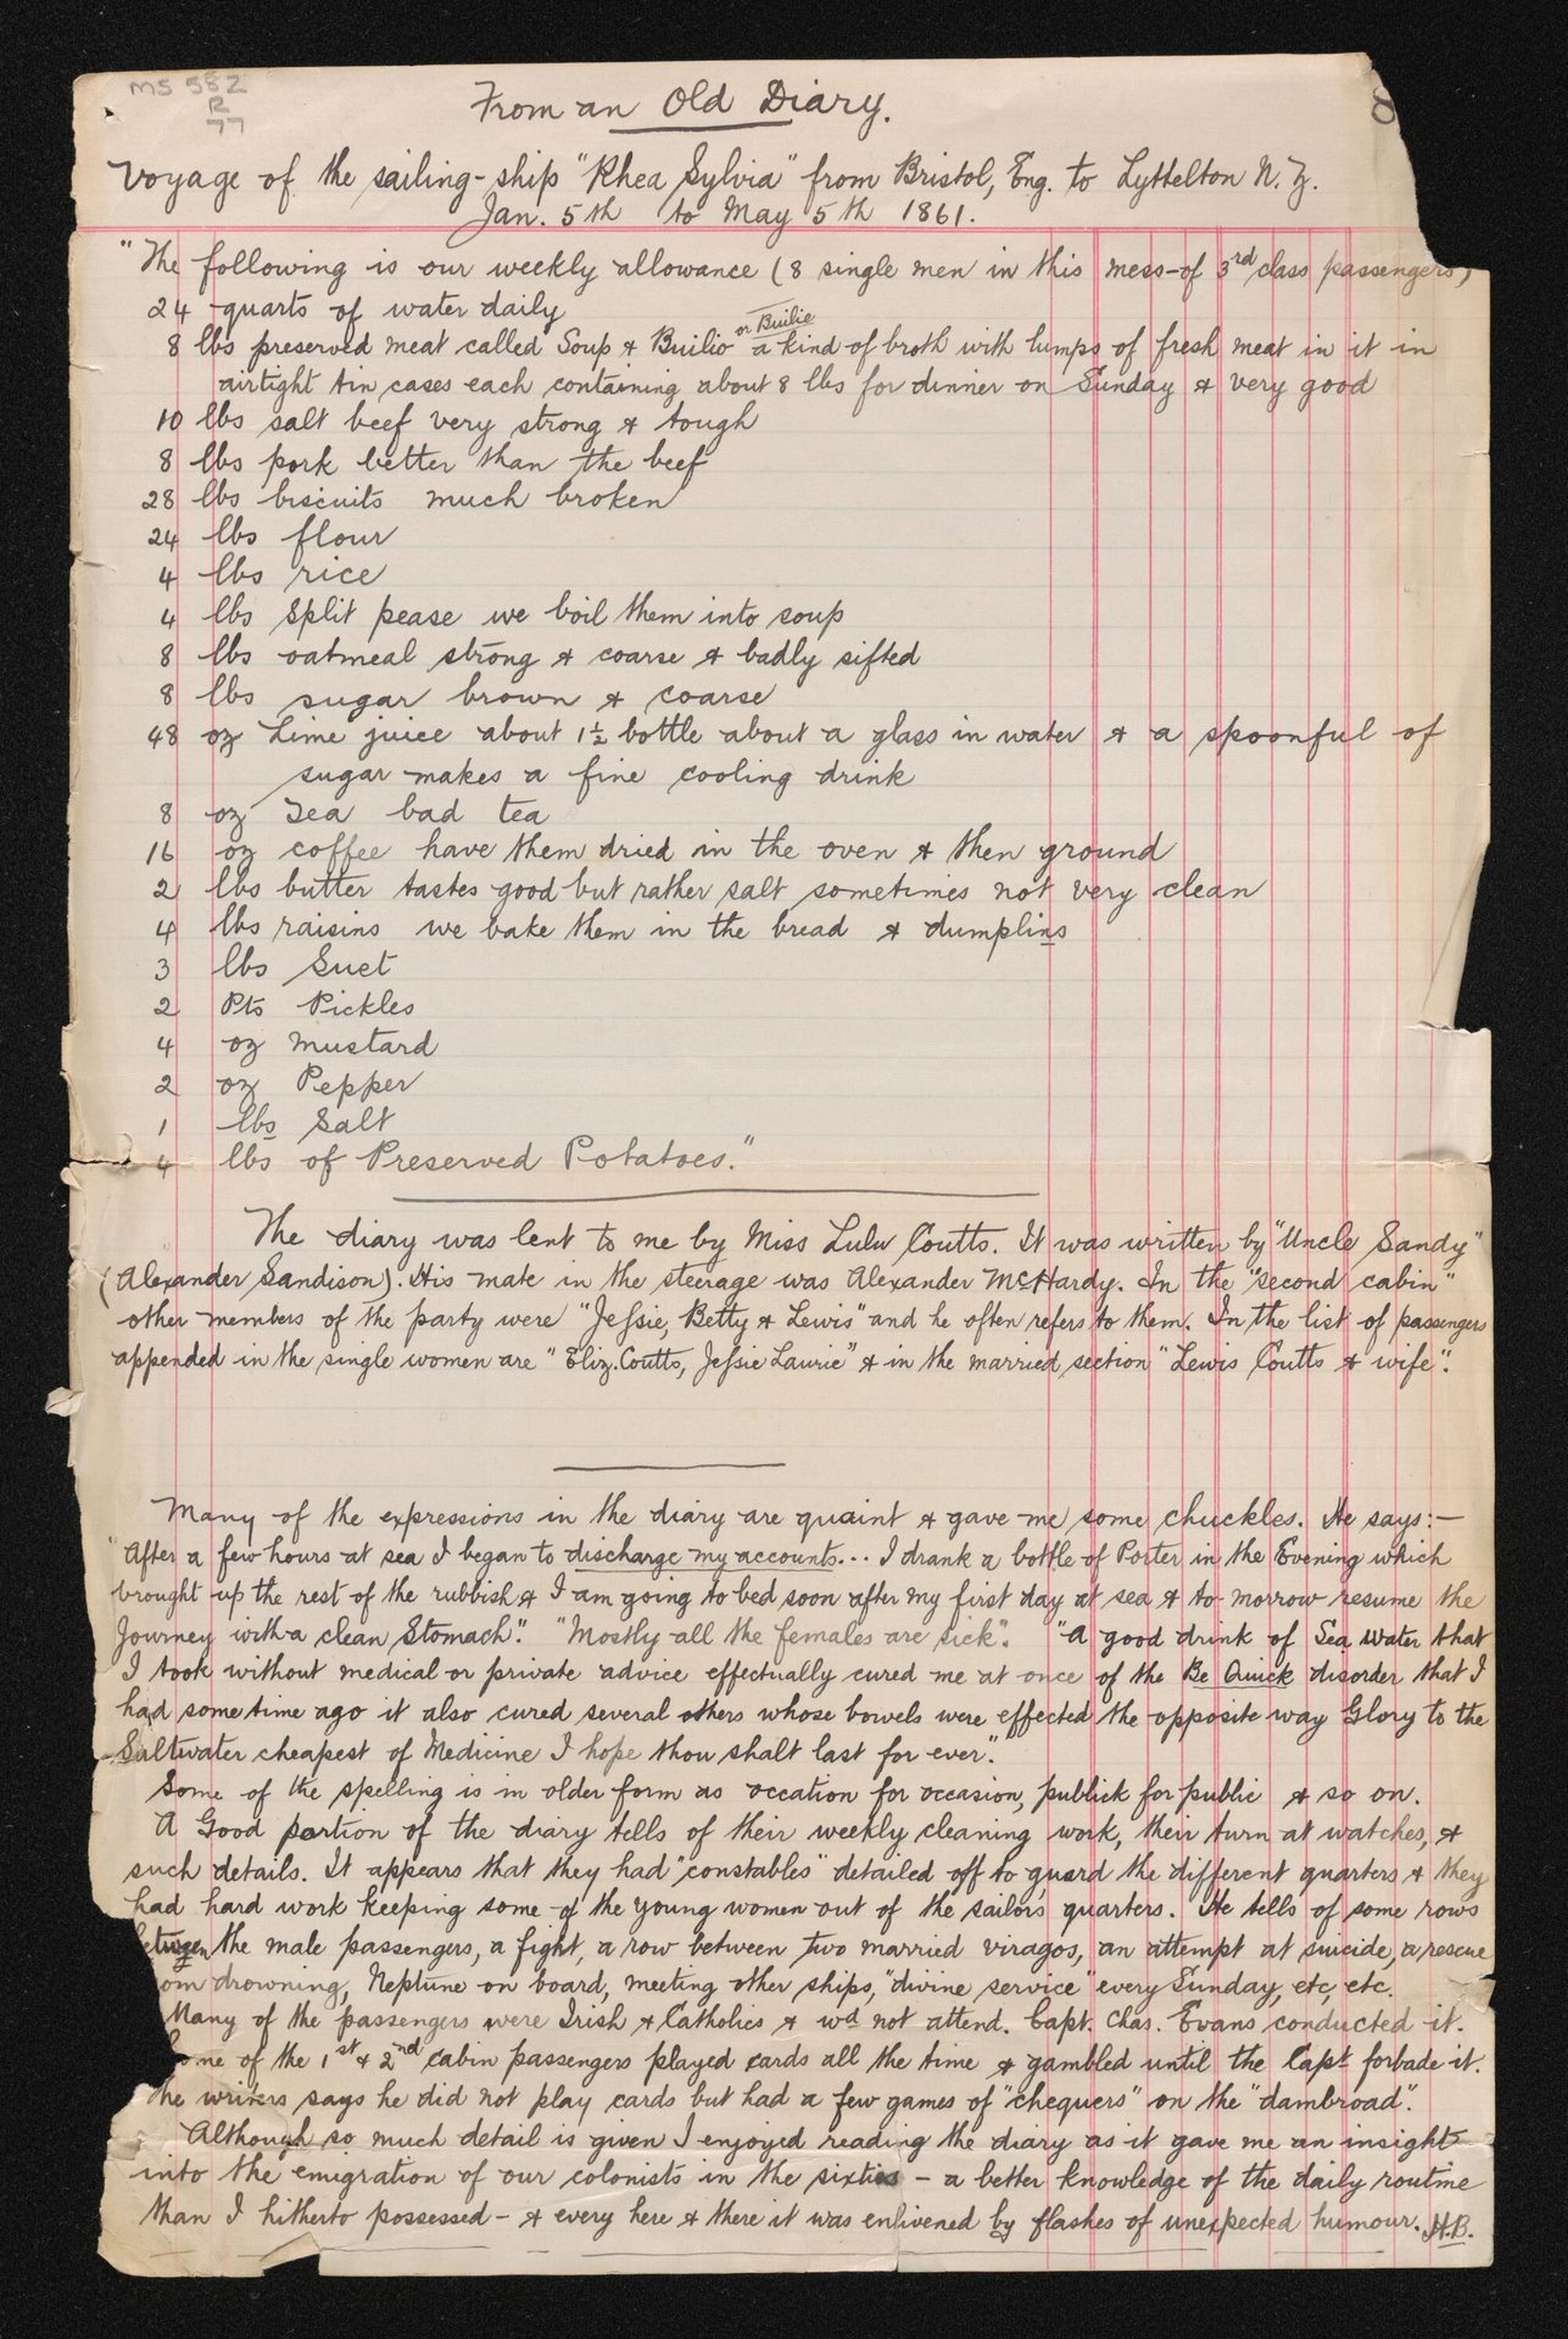 MS 582
R
77
From an Old Diary.
Voyage of the sailing-ship "Rhea Sylvia" from Bristol, Eng. to Lyttelton N.Z.
Jan. 5th to May 5th 1861.
"The following is our weekly allowance (8 single men in this mess-of 3rd class passengers)
24 quarts of water daily
8 lbs preserved meat called Soup & Builio or Builie a kind of broth with lumps of fresh meat in it in
airtight tin cases each containing about 8 lbs for dinner on Sunday & very good
10 lbs salt beef very strong & tough
8 lbs pork better than the beef
28 lbs biscuits much broken
24 lbs flour
4 lbs rice
4 lbs split pease we boil them into soup
8 lbs oatmeal strong & coarse & badly sifted
8 lbs sugar brown & coarse
48 oz Lime juice about 1½ bottle about a glass in water & a spoonful of
sugar makes a fine cooling drink
8 oz Tea bad tea
16 oz coffee have them dried in the oven & then ground
2 lbs butter tastes good but rather salt sometimes not very clean
4 lbs raisins we bake them in the bread & dumplins
3 lbs Suet
2 Pts Pickles
4 oz Mustard
2 oz Pepper
1 lbs Salt
4 lbs of Preserved Potatoes."
The diary was lent to me by Miss Lulu Coutts. It was written by "Uncle Sandy"
(Alexander Sandison). His mate in the steerage was Alexander McHardy. In the "second cabin"
other members of the party were "Jessie, Betty & Lewis" and he often refers to them. In the list of passengers
appended in the single women are "Eliz. Coutts, Jessie Laurie" & in the married section "Lewis Coutts & wife".
Many of the expressions in the diary are quaint & gave me some chuckles. He says:—
"After a few hours at sea I began to discharge my accounts... I drank a bottle of Porter in the Evening which
brought up the rest of the rubbish & I am going to bed soon after my first day at sea & to-morrow resume the
Journey with a clean Stomach". "Mostly all the females are sick". "A good drink of Sea Water that
I took without medical or private advice effectually cured me at once of the Be Quick disorder that I
had some time ago it also cured several others whose bowels were effected the opposite way Glory to the
Saltwater cheapest of Medicine I hope thou shalt last for ever".
Some of the spelling is in older form as occation for occasion, publick for public & so on.
A Good portion of the diary tells of their weekly cleaning work, their turn at watches, &
such details. It appears that they had "constables" detailed off to guard the different quarters & they
had hard work keeping some of the young women out of the sailors' quarters. He tells of some rows
between the male passengers, a fight, a row between two married viragos, an attempt at suicide, a rescue
om drowning, Neptune on board, meeting other ships, "divine service" every Sunday, etc, etc.
Many of the passengers were Irish & Catholics & wd not attend. Capt. Chas. Evans conducted it.
ome of the 1st & 2nd cabin passengers played cards all the time & gambled until the Capt forbade it.
The writers says he did not play cards but had a few games of "chequers" on the "dambroad".
Although so much detail is given I enjoyed reading the diary as it gave me an insight
into the emigration of our colonists in the sixties – a better knowledge of the daily routine
than I hitherto possessed – & every here & there it was enlivened by flashes of unexpected humour. H.B.